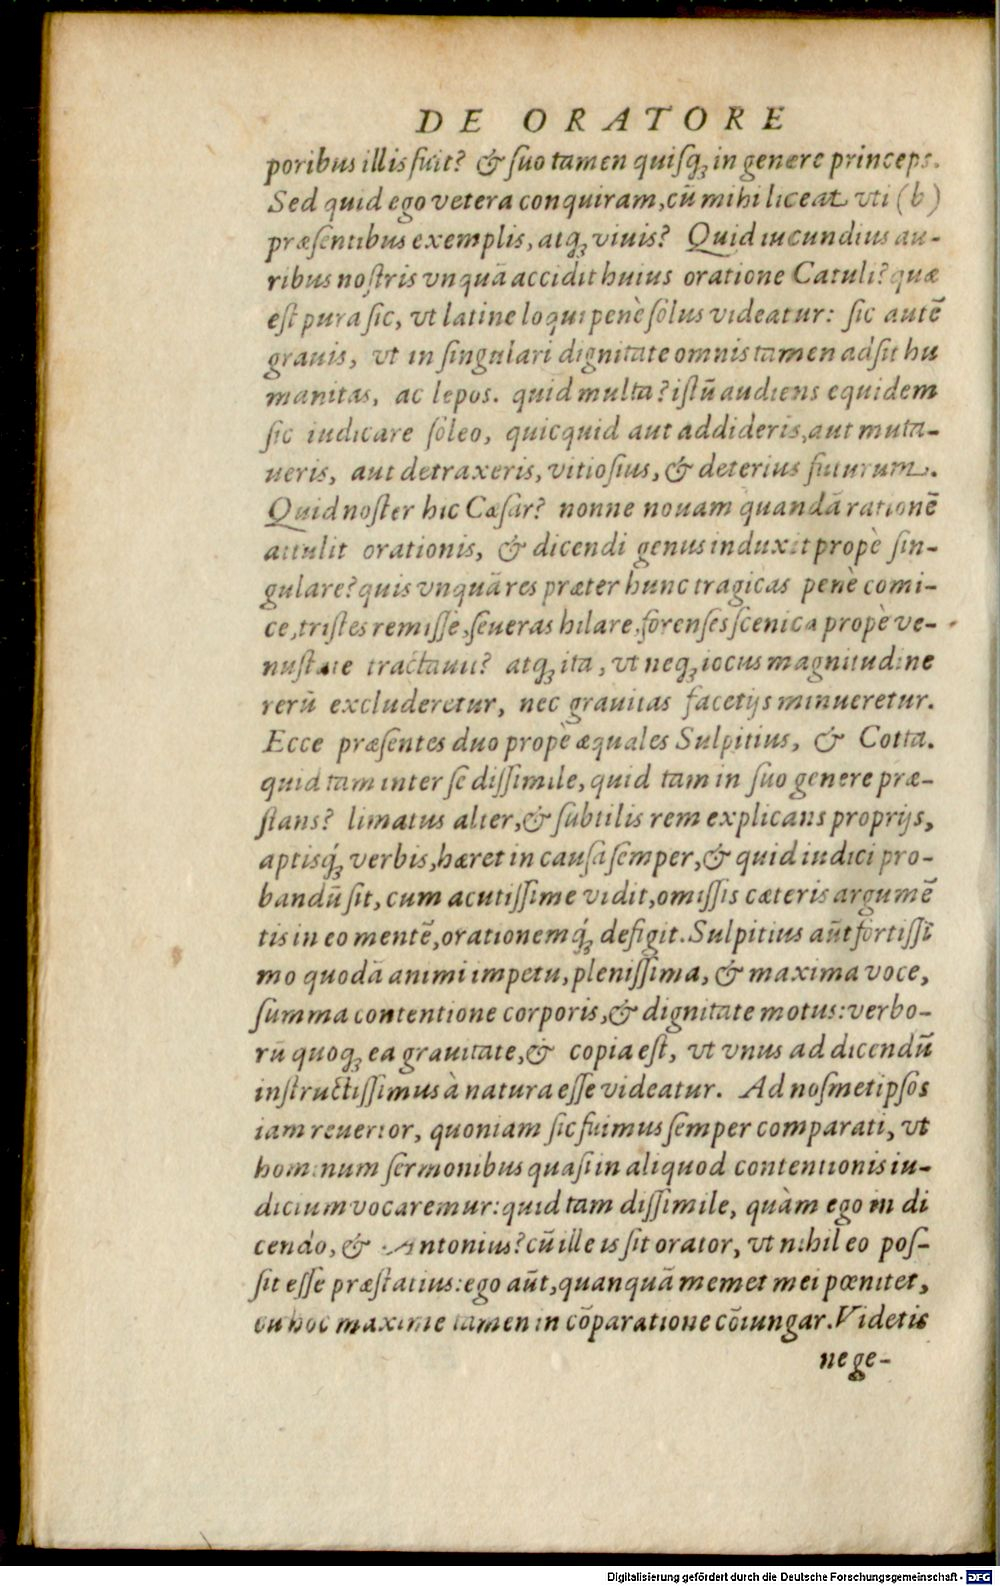 DE ORATORE
poribus illis fuit? & suo tamen quisq; in genere princeps.
Sed quid ego vetera conquiram, cũ mihi liceat vti (b)
præsentibus exemplis, atq; viuis? Quid iucundius au-
ribus nostris vnquã accidit huius oratione Catuli? quæ
est pura sic, vt latine loqui penè solus videatur: sic autẽ
grauis, vt in singulari dignitate omnis tamen adsit hu
manitas, ac lepos. quid multa? istũ audiens equidem
sic iudicare soleo, quicquid aut addideris, aut muta-
ueris, aut detraxeris, vitiosius, & deterius futurum.
Quid noster hic Cæsar? nonne nouam quandã rationẽ
attulit orationis, & dicendi genus induxit propè sin-
gulare? quis vnquã res præter hunc tragicas penè comi-
ce, tristes remisse, seueras hilare, forenses scenica propè ve-
nustate tractauit? atq; ita, vt neq; iocus magnitudine
rerũ excluderetur, nec grauitas facetijs minueretur.
Ecce præsentes duo propè æquales Sulpitius, & Cotta.
quid tam inter se dissimile, quid tam in suo genere præ-
stans? limatus alter, & subtilis rem explicans proprijs,
aptisq́; verbis, hæret in causa semper, & quid iudici pro-
bandũ sit, cum acutissime vidit, omissis cæteris argumẽ
tis in eo mentẽ, orationemq́; defigit. Sulpitius aũt fortissi
mo quodã animi impetu, plenissima, & maxima voce,
summa contentione corporis, & dignitate motus: verbo-
rũ quoq; ea grauitate, & copia est, vt vnus ad dicendũ
instructissimus à natura esse videatur. Ad nosmetipsos
iam reuertor, quoniam sic fuimus semper comparati, vt
hominum sermonibus quasi in aliquod contentionis iu-
dicium vocaremur: quid tam dissimile, quàm ego in di
cendo, & Antonius? cũ ille is sit orator, vt nihil eo pos-
sit esse præstatius: ego aũt, quanquã memet mei pœnitet,
cu hoc maxime tamen in cõparatione cõiungar. Videtis
ne ge-
Digitalisierung gefördert durch die Deutsche Forschungsgemeinschaft - DFG